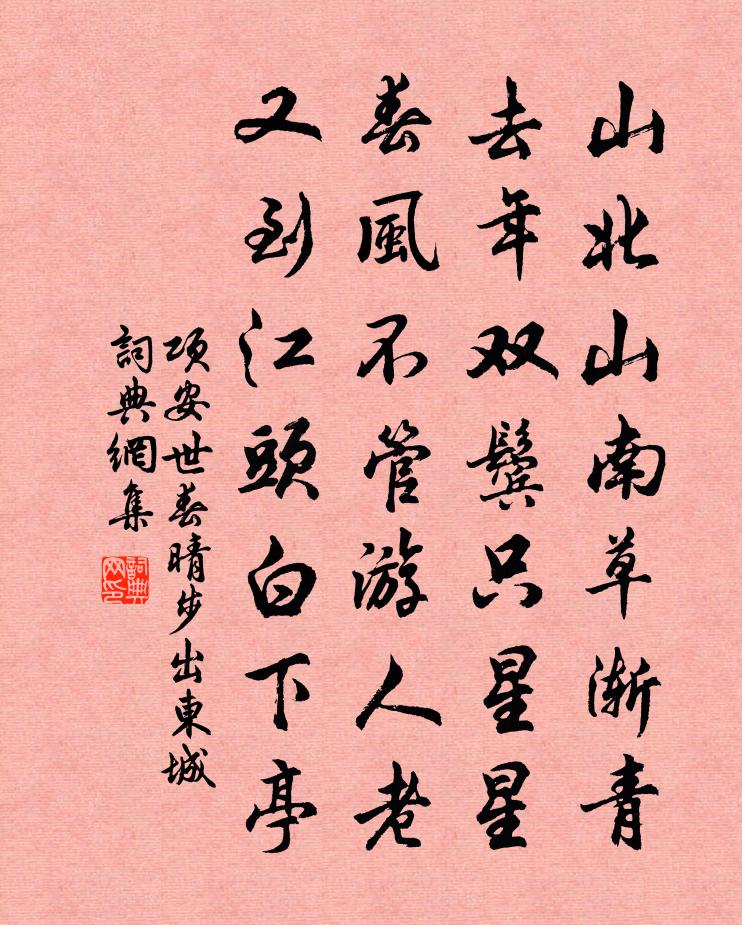 山北山南草渐青
去年双鬓只星星
春風不管游人老
又到江頭白下亭
项安世春晴步出東城
詞典網集
詞典網印